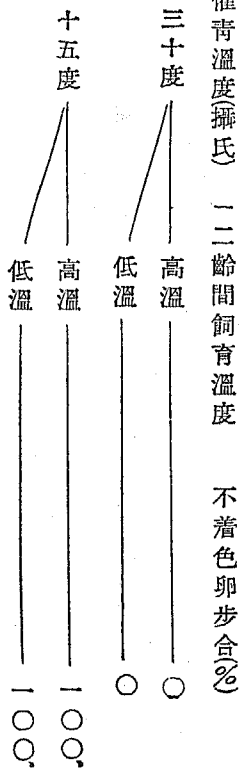 催靑溫度(攝氏) 一二齡間飼育溫度 不着色卵步合(%)
三十度 高溫 〇
低溫 〇
十五度 高溫 一〇〇、
低溫 一〇〇、